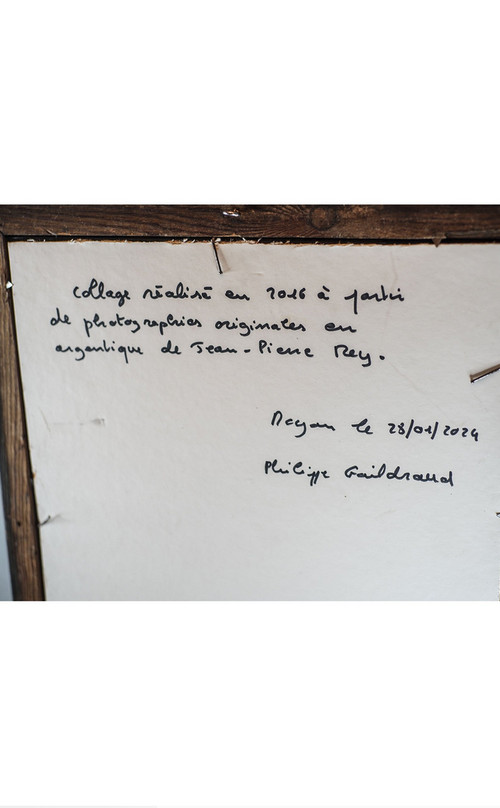 collage réalisé en 2016 à partir
de photographies originales en
argentique de Jean-Pierre Rey.
Royan le 28/01/2024
Philippe